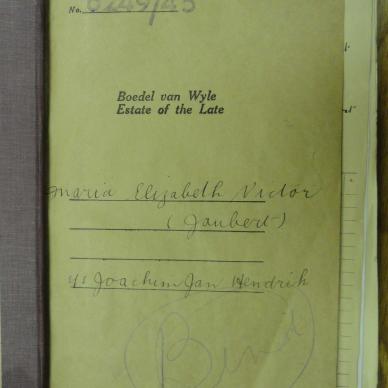 No. 6249/45
Boedel van Wyle
Estate of the Late
Maria Elizabeth Victor
(Jaubert)
Joachim Jan Hendrik
Bind